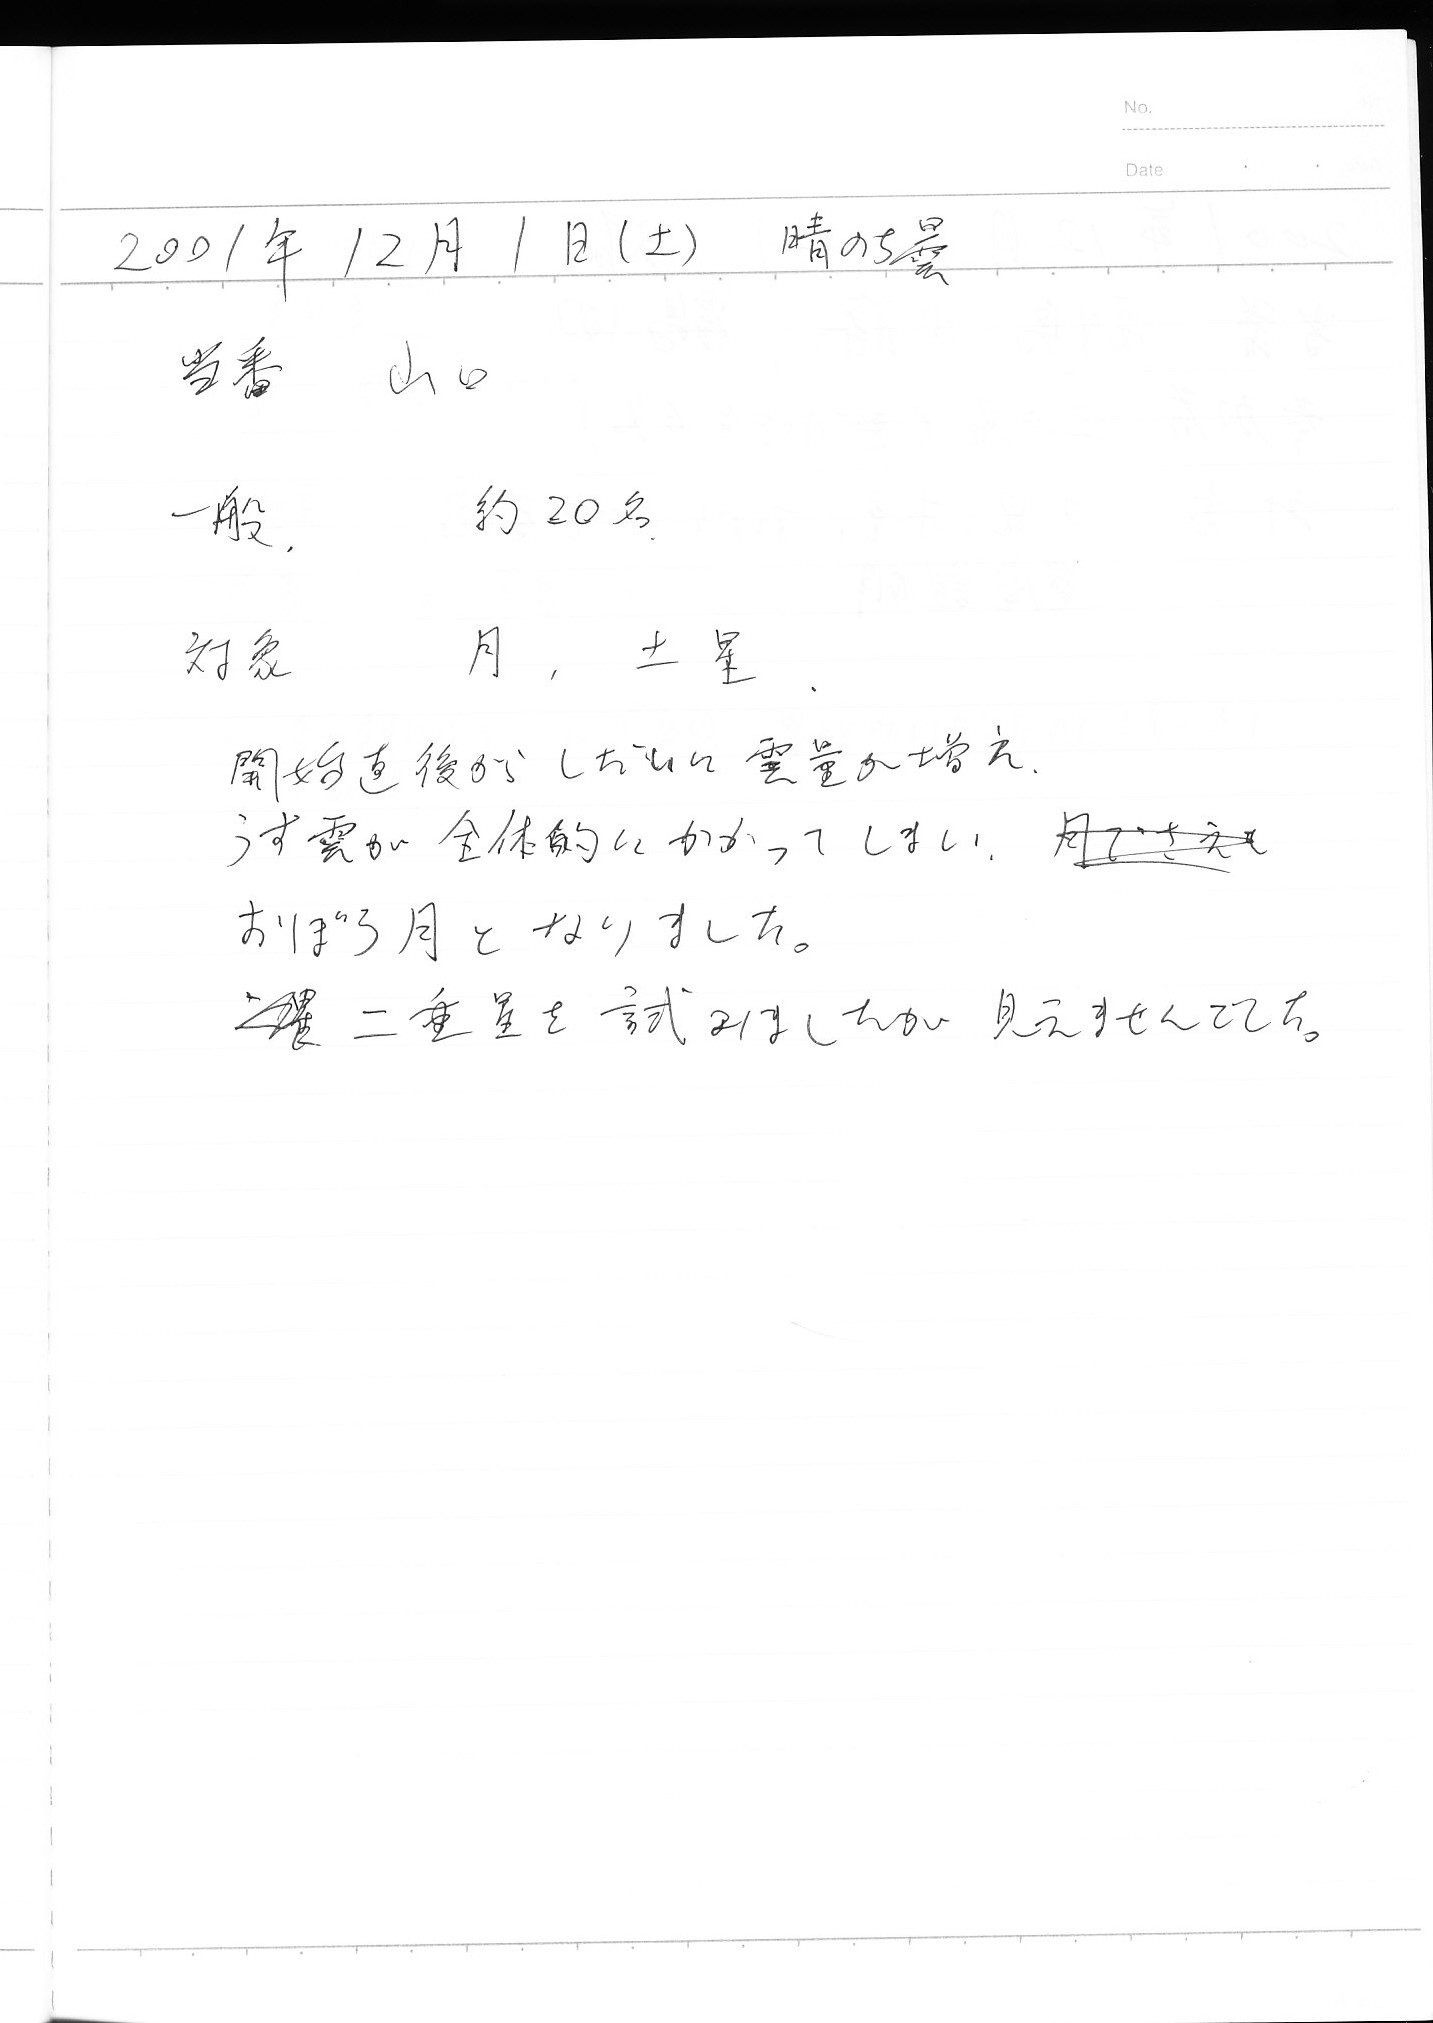 No.
Date
2001年 12月 1日(土) 晴のち曇
当番 山口
一般. 約20名.
対象 月, 土星.
開始直後から しだいに 雲量が増え.
うす雲が 全体的に かかって しまい. 月でさえも
おぼろ月と なりました。
二重星を 試みましたが 見えませんでした。